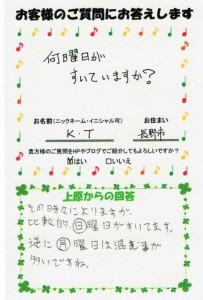 お客様のご質問にお答えします
何曜日が
すいていますか?
お名前(ニックネーム・イニシャル可)
お住まい
K・T
長野市
貴方様のご質問をHPやブログでご紹介してもよろしいですか?
☑はい
□いいえ
上原からの回答
その時々によりますが、
比較的、㊐曜日がすいてます。
逆に㊊曜日は混む事が
多いですね。